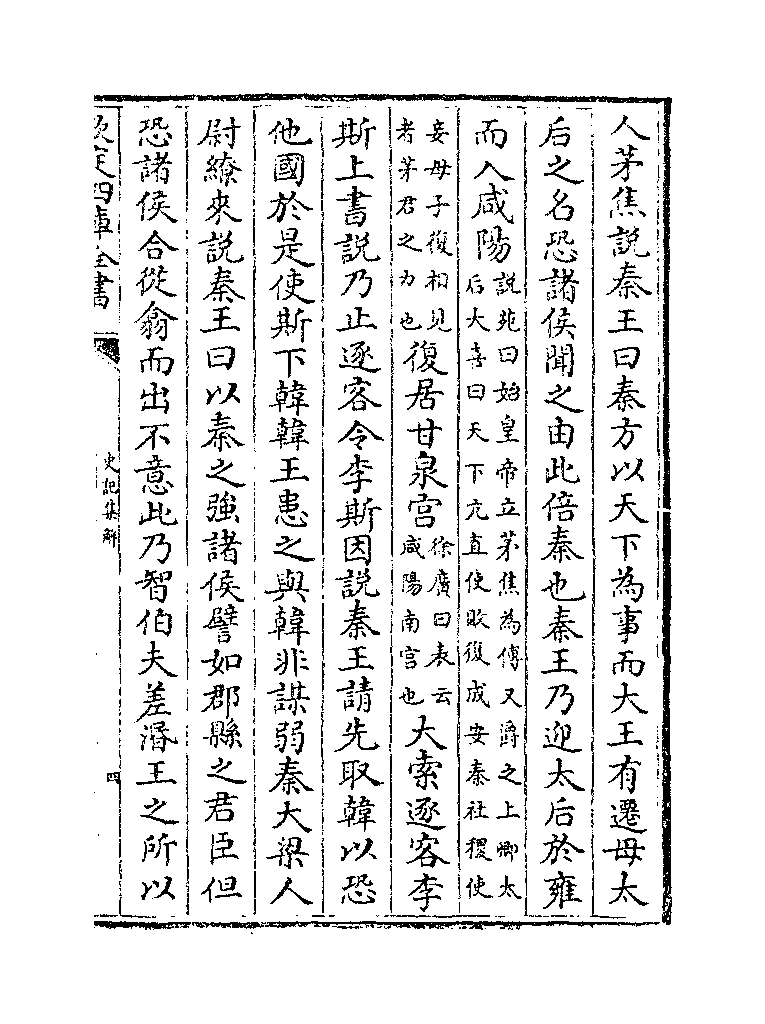 人茅焦說秦王曰秦方以天下為事而大王有遷母太
后之名恐諸侯聞之由此倍秦也秦王乃迎太后於雍
而入咸陽說苑曰始皇帝立茅焦為傅又爵之上卿太
后大喜曰天下亢直使敗復成安秦社稷使
妾母子復相見
者茅君之力也復居甘泉宮徐廣曰表云
咸陽南宮也大索逐客李
斯上書說乃止逐客令李斯因說秦王請先取韓以恐
他國於是使斯下韓韓王患之與韓非謀弱秦大梁人
尉繚來說秦王曰以秦之強諸侯譬如郡縣之君臣但
恐諸侯合從翕而出不意此乃智伯夫差湣王之所以
欽定四庫全書
史記集解
四